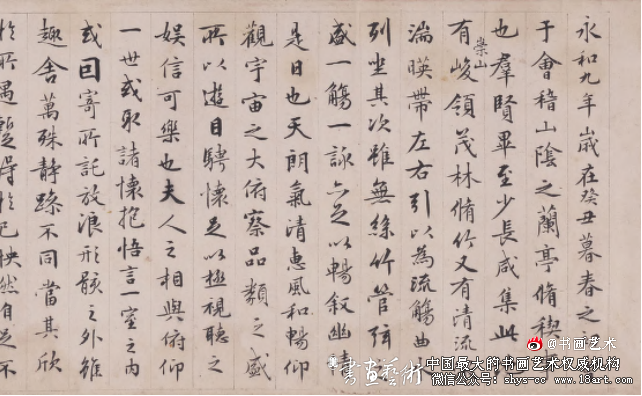 永和九年歲在癸丑暮春之
于會稽山陰之蘭亭脩稧
也羣賢畢至少長咸集此
有崇山峻領茂林脩竹又有清流
湍暎帶左右引以為流觴曲
列坐其次雖無絲竹管弦
盛一觴一詠亦足以暢叙幽情
是日也天朗氣清惠風和暢仰
觀宇宙之大俯察品類之盛
所以遊目騁懷足以極視聽之
娛信可樂也夫人之相與俯仰
一世或取諸懷抱悟言一室之內
或因寄所託放浪形骸之外雖
趣舍萬殊靜躁不同當其欣
於所遇暫得於己快然自足不
@书画艺术
書畫藝術
中国最大的书画艺术权威机构
微信公众号：shys-cc www.18art.com